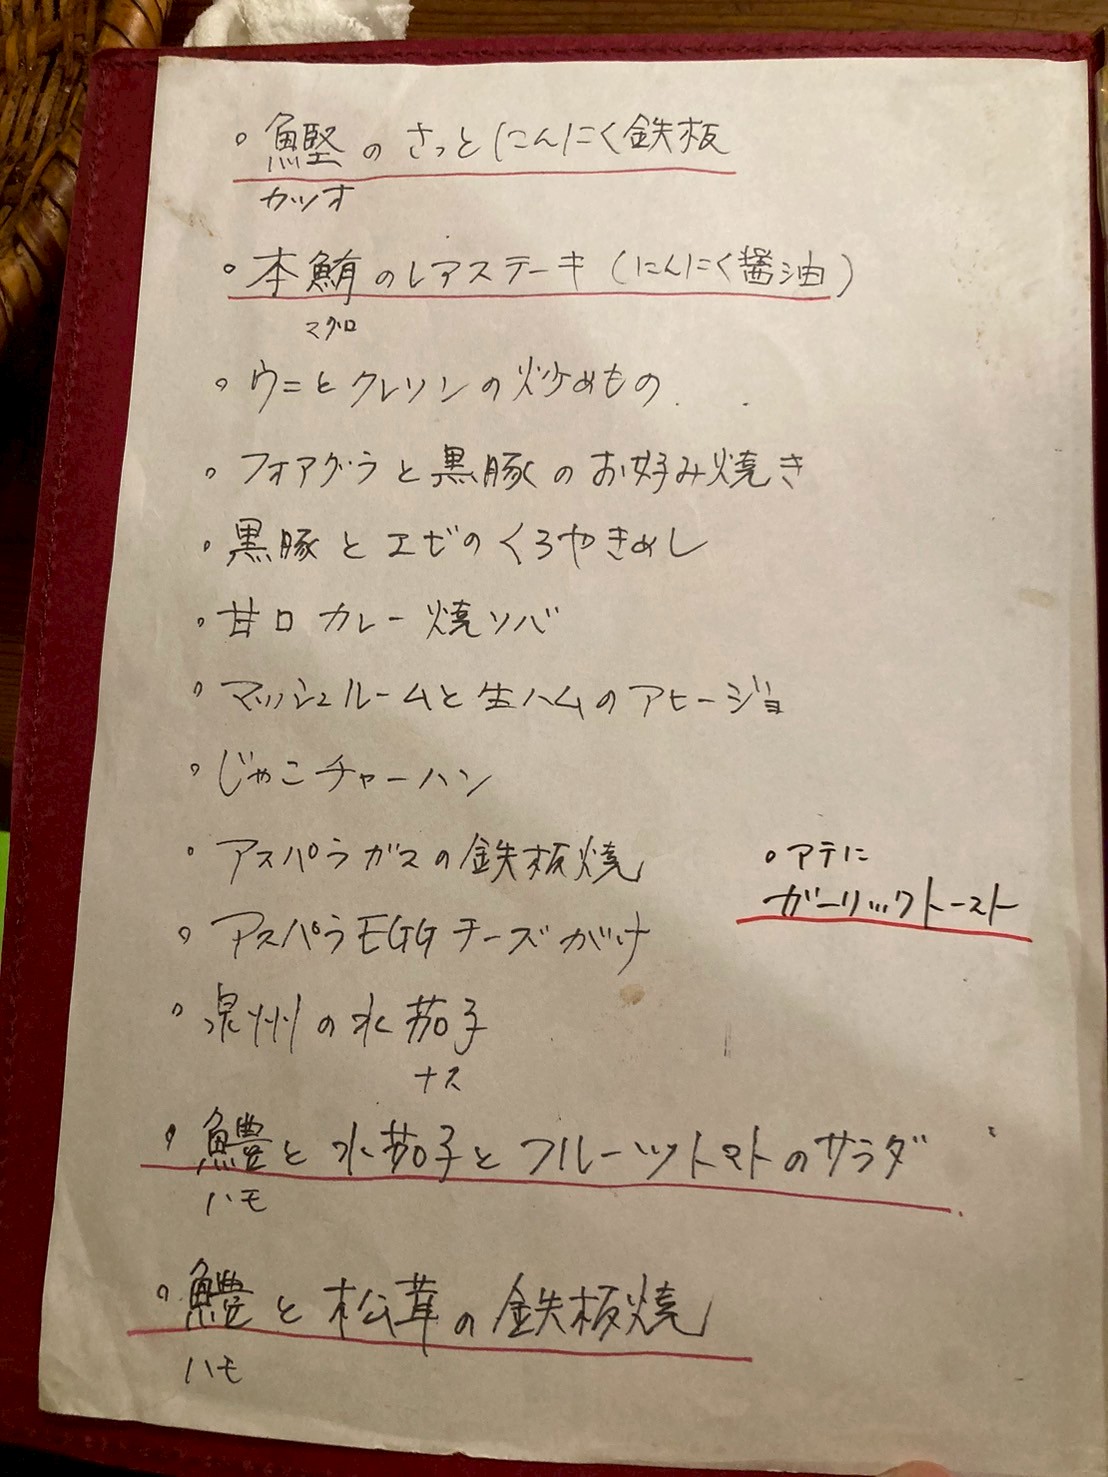 。鰹のさっとにんにく鉄板
カツオ
。本鮪のレアステーキ(にんにく醤油)
マグロ
。ウニとクレソンの炒めもの
。フォアグラと黒豚のお好み焼き
。黒豚とエビのくろやきめし
。甘口カレー焼ソバ
。マッシュルームと生ハムのアヒージョ
。じゃこチャーハン
。アスパラガスの鉄板焼
。アテに
ガーリックトースト
。アスパラEGGチーズがけ
。泉州の水茄子
ナス
。鱧と水茄子とフルーツトマトのサラダ
ハモ
。鱧と松茸の鉄板焼
ハモ